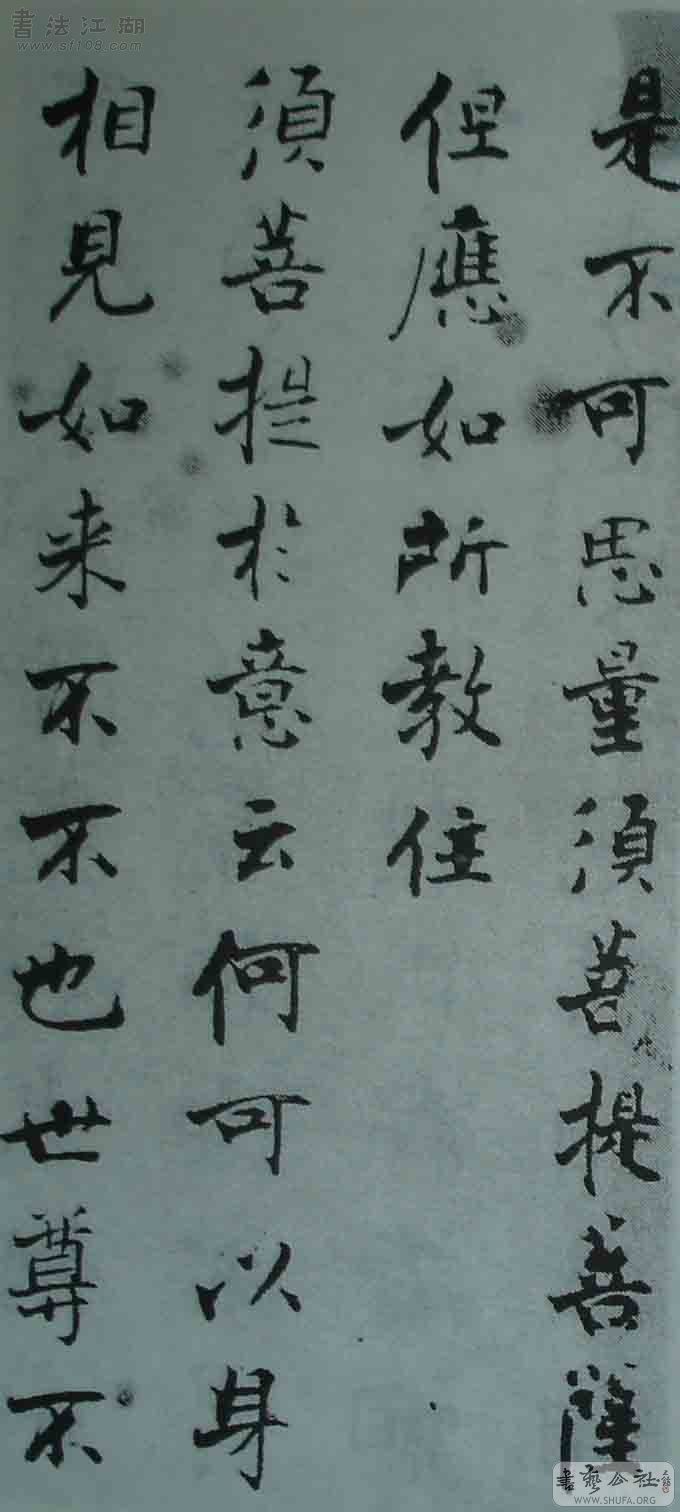 是不可思量須菩提菩薩
但應如所教住
須菩提於意云何可以身
相見如来不不也世尊不
書法江湖
www.sf108.com
書藝公社
WWW.SHUFA.ORG